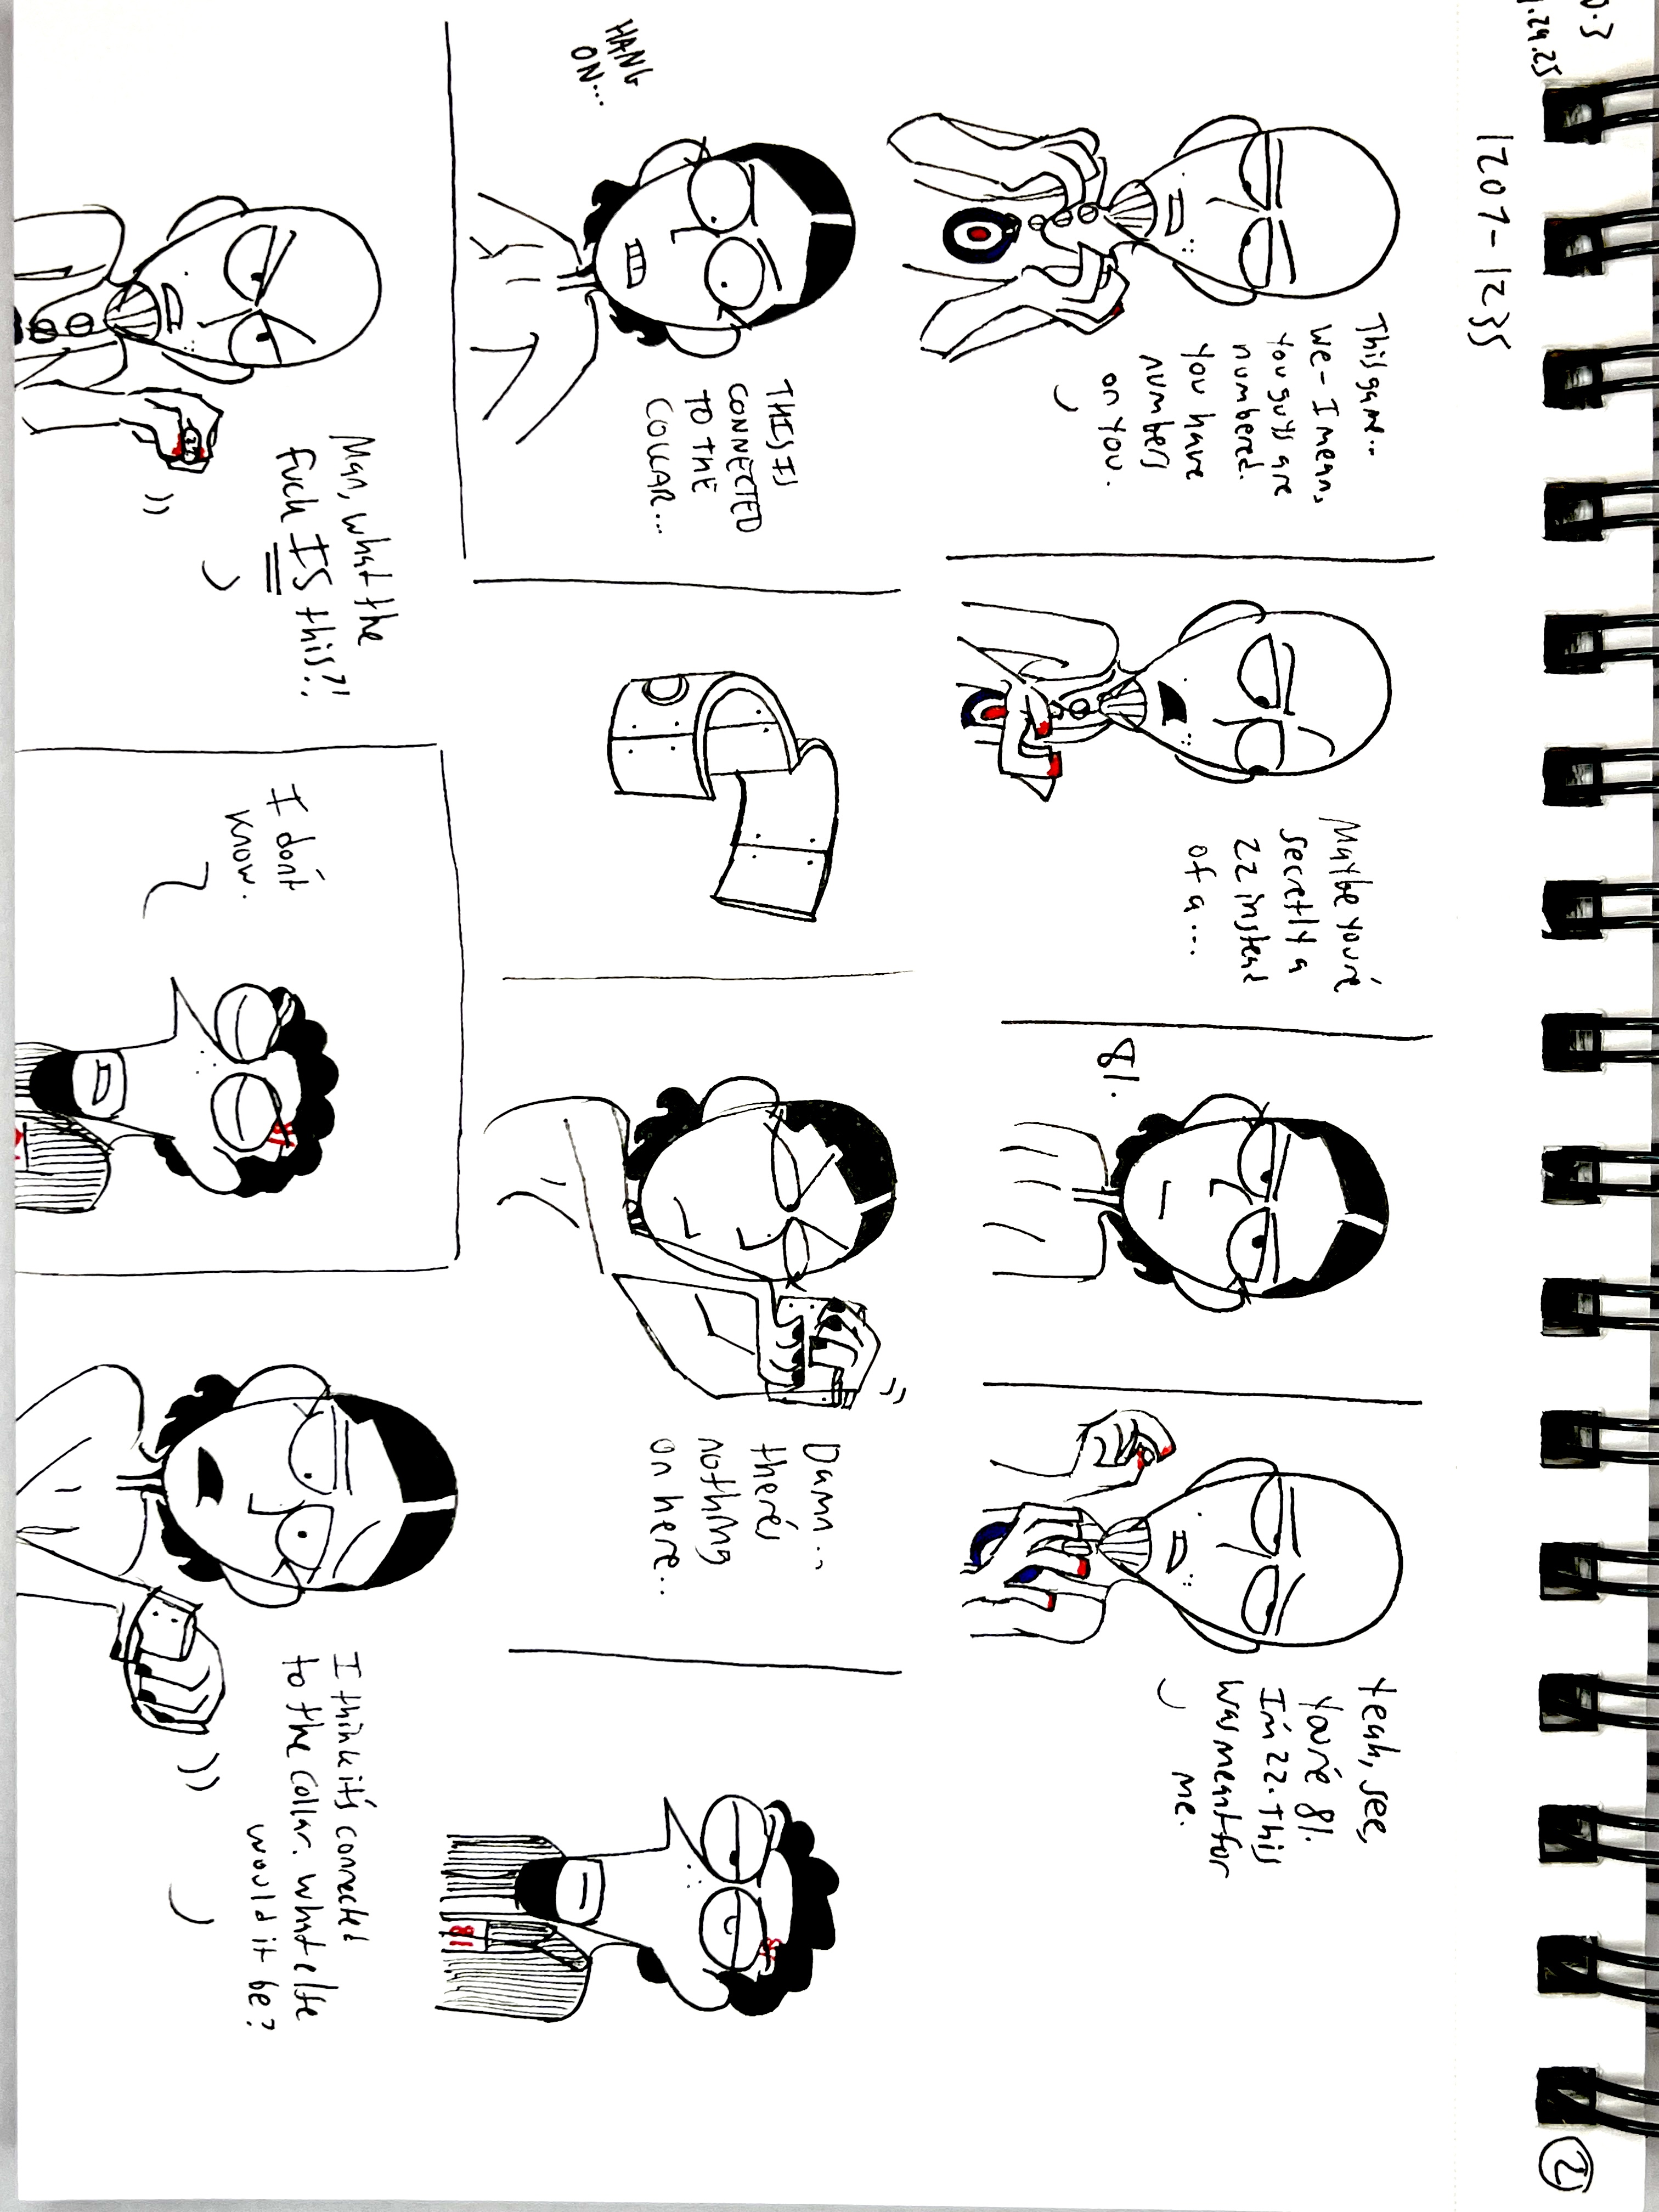 0.3
.24.25
2
1207-1235
This game...
We- I mean,
you guys are
numbered.
You have
numbers
on you.
Maybe you're
secretly a
22 instead
of a...
81.
Yeah, see,
You're 81.
I'm 22. This
was meant for
me.
HANG
ON...
THIS IS
CONNECTED
TO THE
COLLAR...
Damn...
there's
nothing
on here..
81
81
Man, what the
fuck IS this?!
22
I don't
know.
81
I think it's connected
to the collar. What else
would it be?